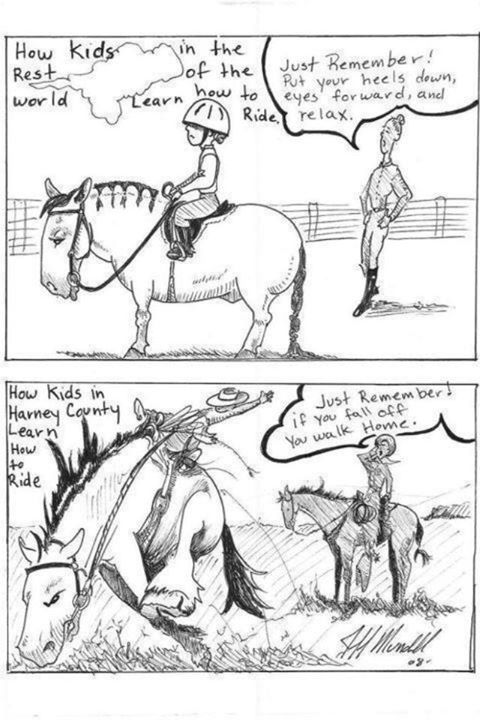 How Kids in the
Rest of the
world Learn how to
Ride.
Just Remember!
Put your heels down,
eyes forward, and
relax.
How Kids in
Harney County
Learn
How
to
Ride
Just Remember!
if you fall off
You walk Home.
08-